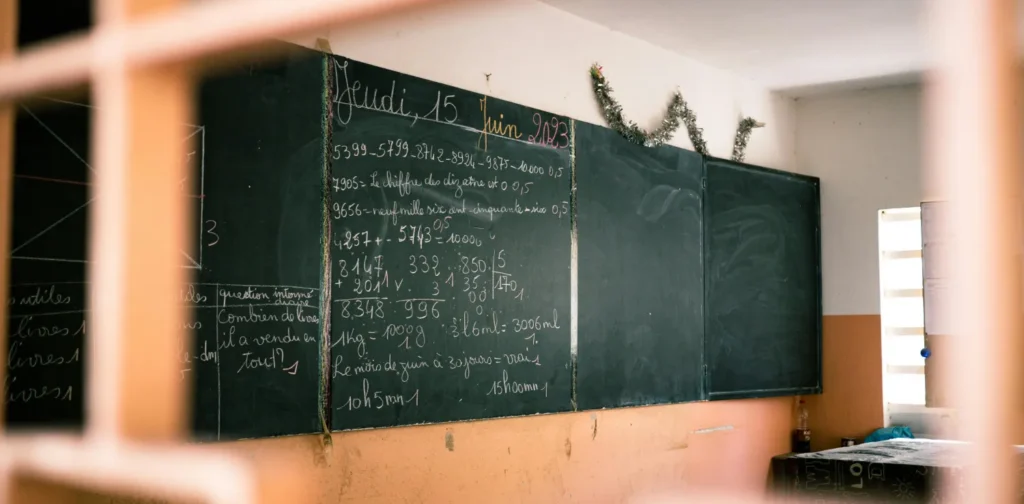 Jeudi, 15 Juin 2023
5399_5799_8742_8924_9875_10.000 0,5
7905 = Le chiffre des dizaine est 0 0,5
9656 = neuf mille six cent cinquante-six 0,5
4257 + - 5743 = 10000 0,5
8147 332 850 5
+ 201 1 × 3 1 35 170 1
8.348 996 00
1Kg = 1000g 1 3 l 6ml = 3006ml 1
Le mois de juin à 30 jours = vrai 1
10h5mn 1 15h00mn 1
3
utiles question interme
diaire
livres 1 Combien de livres
livres 1 il a vendu en
livres 1 tout? 1